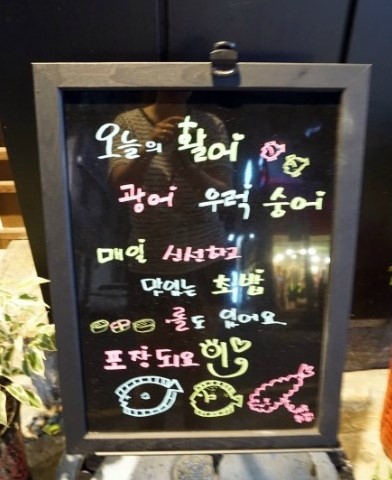 오늘의 활어
광어 우럭 숭어
매일 신선하고
맛있는 초밥
롤도 있어요
포장되요